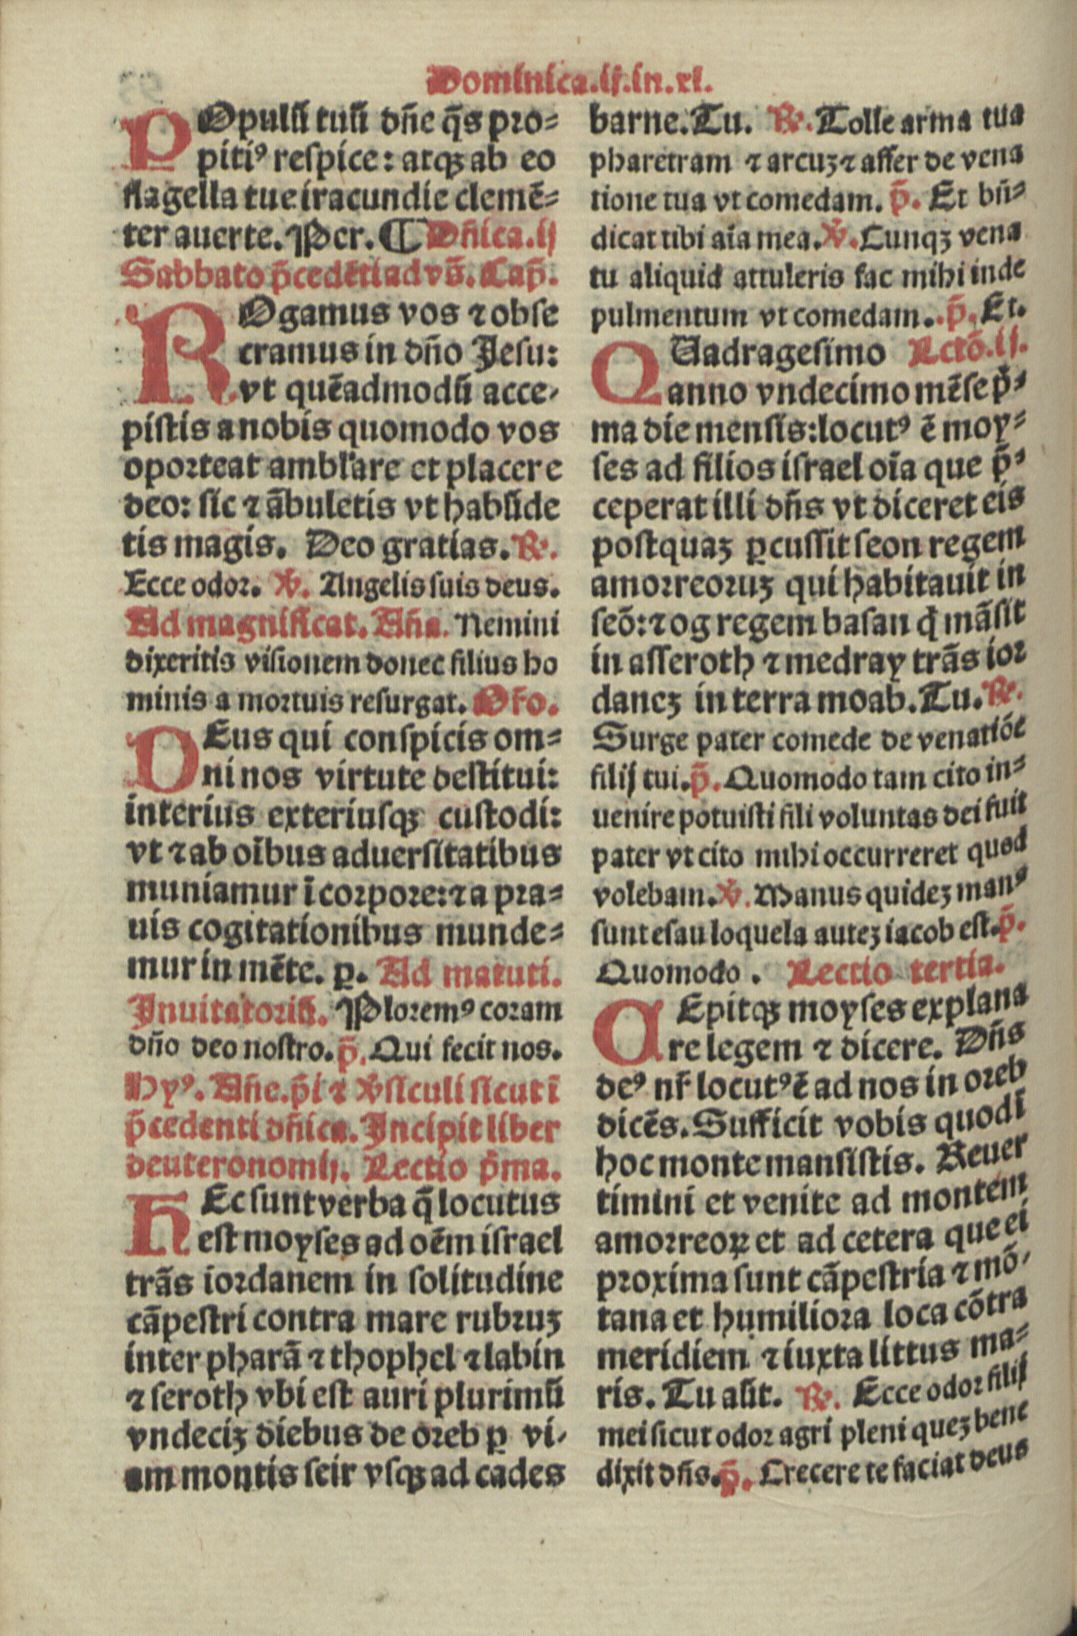 Dominica.ij.in.xl.
POpulũ tuũ dñe q̃s pro⸗
pitiꝰ respice: atqꝫ ab eo
flagella tue iracundie clemẽ⸗
ter auerte. Per. ¶ Dñica.ij
Sabbato p̃cedẽti ad vs̃. Cap̃.
ROgamus vos ⁊ obse
cramus in dño Jesu:
vt quẽadmodũ acce⸗
pistis a nobis quomodo vos
oporteat ambl'are et placere
deo: sic ⁊ ãbuletis vt habũde
tis magis. Deo gratias. ℟.
Ecce odor. ℣. Angelis suis deus.
Ad magnificat. Añа. Nemini
dixeritis visionem donec filius ho
minis a mortuis resurgat. Or̃o.
DEus qui conspicis om⸗
ni nos virtute destitui:
interius exteriusqꝫ custodi:
vt ⁊ ab oĩbus aduersitatibus
muniamur ĩ corpore: ⁊ a pra⸗
uis cogitationibus munde⸗
mur in mẽte. ꝑ. Ad matuti.
Inuitatoriũ. Ploremꝰ coram
dño deo nostro. p̃. Qui fecit nos.
Hyꝰ. Añe. p̃i ⁊ ℣siculi sicut ĩ
p̃cedenti dñica. Incipit liber
deuteronomij. Lectio p̃ma.
HEc sunt verba q̃ locutus
est moyses ad oẽm israel
trãs iordanem in solitudine
cãpestri contra mare rubruꝫ
inter pharã ⁊ thophel ⁊ labin
⁊ seroth vbi est auri plurimũ
vndeciꝫ diebus de oreb ꝑ vi⸗
am montis seir vsqꝫ ad cades
barne. Tu. ℟. Tolle arma tua
pharetram ⁊ arcuꝫ ⁊ affer de vena
tione tua vt comedam. p̃. Et bñ⸗
dicat tibi aĩa mea. ℣. Cunqꝫ vena
tu aliquid attuleris fac mihi inde
pulmentum vt comedam. p̃. Et.
QUadragesimo Lctõ.ij.
anno vndecimo mẽse p̃⸗
ma die mensis: locutꝰ ẽ moy⸗
ses ad filios israel oĩa que p̃⸗
ceperat illi dñs vt diceret eis
postquaꝫ ꝑcussit seon regem
amorreoruꝫ qui habitauit in
seõ: ⁊ og regem basan q̇ mãsit
in asseroth ⁊ medray trãs ior
daneꝫ in terra moab. Tu. ℟.
Surge pater comede de venatiõe
filij tui. p̃. Quomodo tam cito in⸗
uenire potuisti fili voluntas dei fuit
pater vt cito mihi occurreret quod
volebam. ℣. Manus quideꝫ manꝰ
sunt esau loquela auteꝫ iacob est. p̃.
Quomodo. Lectio tertia.
CEpitqꝫ moyses explana
re legem ⁊ dicere. Dñs
deꝰ nr̃ locutꝰ ẽ ad nos in oreb
dicẽs. Sufficit vobis quod ĩ
hoc monte mansistis. Reuer
timini et venite ad montem
amorreoꝝ et ad cetera que ei
proxima sunt cãpestria ⁊ mõ⸗
tana et humiliora loca cõtra
meridiem ⁊ iuxta littus ma⸗
ris. Tu aũt. ℟. Ecce odor filij
mei sicut odor agri pleni queꝫ bene
dixit dñs. p̃. Crecere te faciat deus